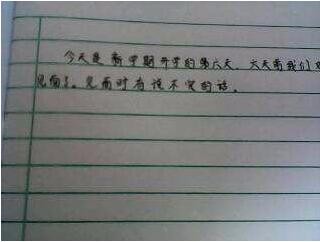 今天是新学期开学的第六天,六天前我们又
见面了。见面时有说不完的话。